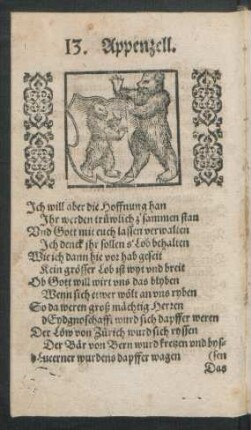 13. Appenzell.
Ich will aber die Hoffnung han
Ihr werden trüwlich z'sammen stan
Vnd Gott mit euch lassen verwalten
Ich denck jhr sollen s'Lob behalten
Wie ich dann hie vor hab geseit
Kein grösser Lob ist wyt vnd breit
Ob Gott will wirt vns das blyben
Wenn sich etwer wölt an vns ryben
So da weren groß mächtig Herren
d'Eydgnoschafft wurd sich dapffer weren
Der Löw von Zürich wurd sich ryssen
Der Bär von Bern wurd kretzen vnd bys-
Lucerner wurdens dapffer wagen (sen
Das